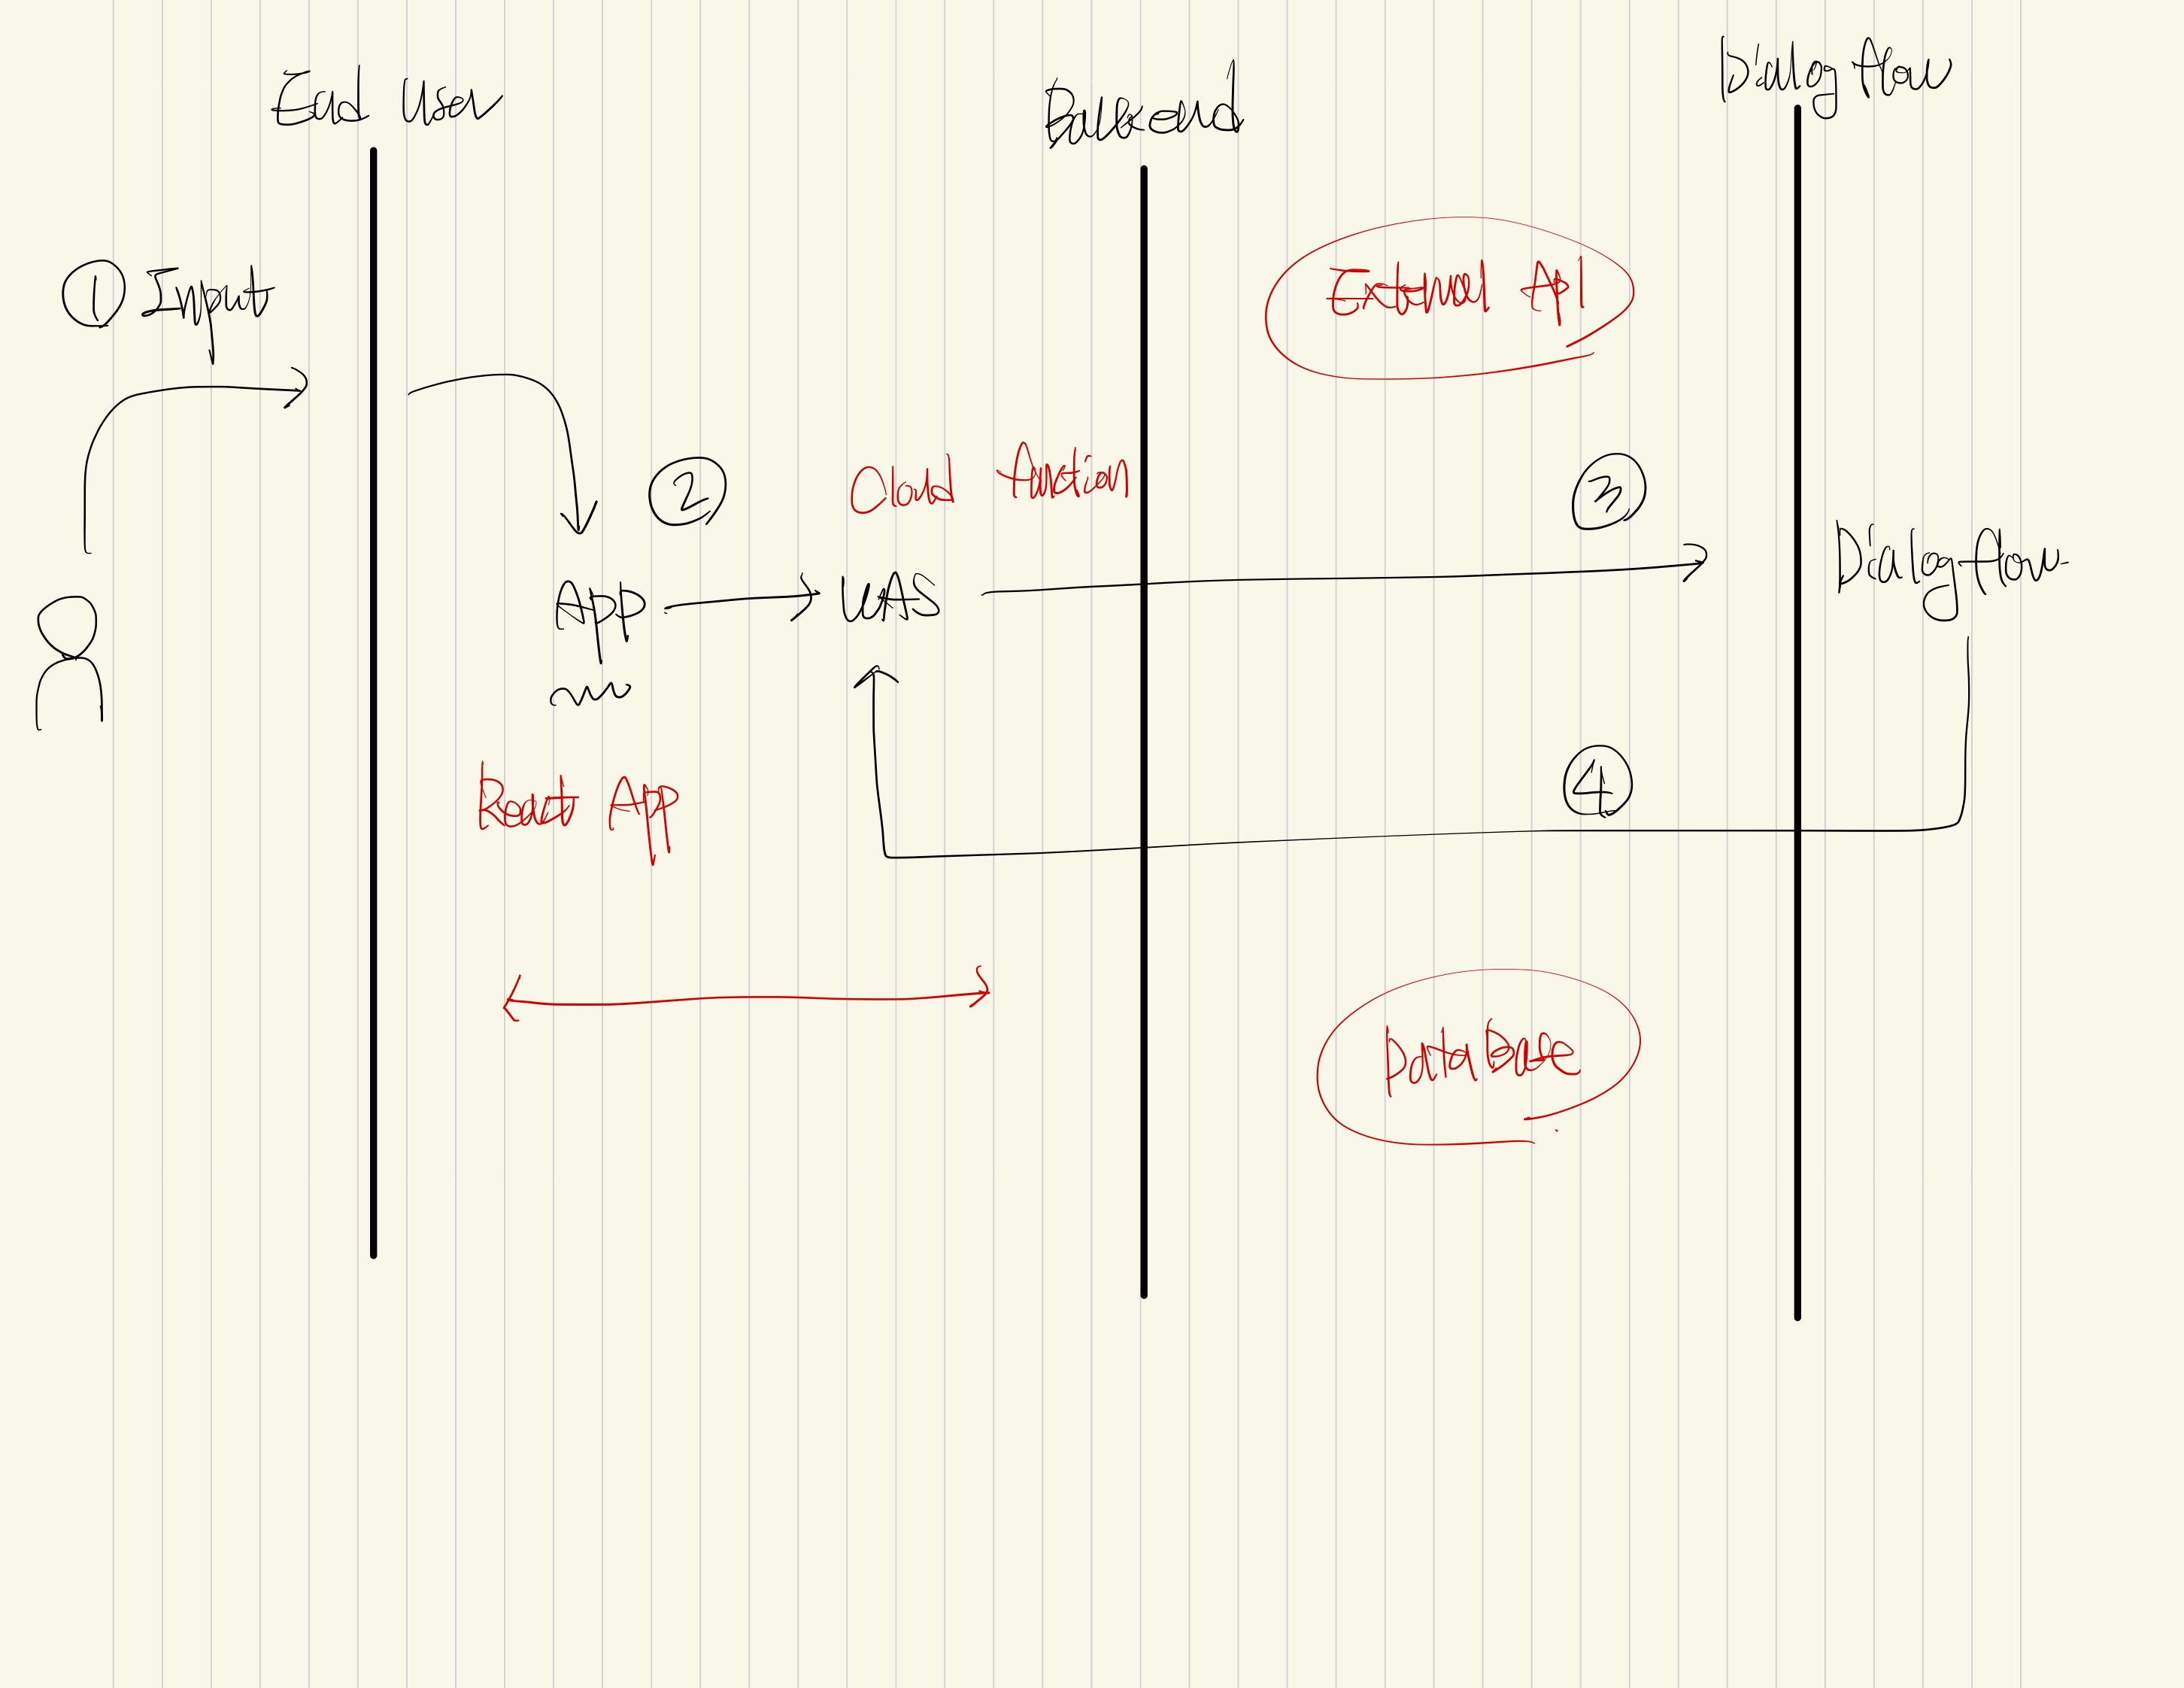 End User
Backend
Dialog flow
① Input
External API
②
Cloud function
③
App
WAS
Dialogflow
React App
④
DataBase